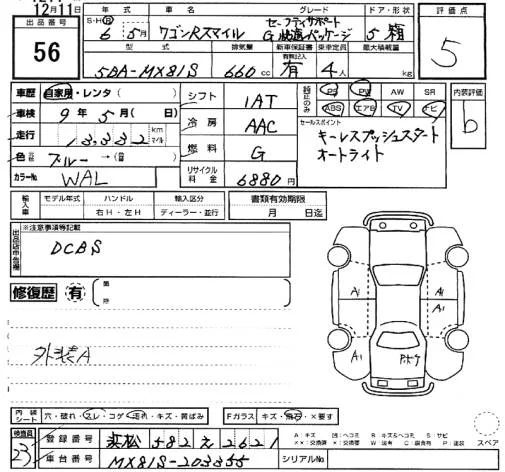 12月11日
出品番号
56
年式 車名 グレード ドア・形状 評価点
S・H・R 6 5月 ワゴンRスマイル セーフティサポート G 快適パッケージ 5 箱
5
型式 排気量 新車保証書 乗車定員 最大積載量
有無記入
5BA-MX81S 660 cc 有 4人 kg
車歴 自家用・レンタ( )
シフト 1AT
PS PW AW SR
ABS エアB TV ナビ
内装評価
b
車検 9年5月( 日)
冷房 AAC
セールスポイント
キーレスプッシュスタート
オートライト
走行 13,332 km マイル
燃料 G
色 ブルー →( )
カラーNo. WAL
リサイクル料金 6880円
輸入車 モデル年式 ハンドル 輸入区分 書類有効期限
右H・左H ディーラー・並行 月 日迄
※注意事項等記載
DCBS
修復歴 有
外装A
A1 A1
A1 A1
内装シート 穴・破れ・スレ・コゲ・汚れ・キズ・黄ばみ
Fガラス キズ・飛石・×要す
スペア
検査員
23
登録番号 浜松 582 え 2621
車台番号 MX81S-203355
シリアルNo.